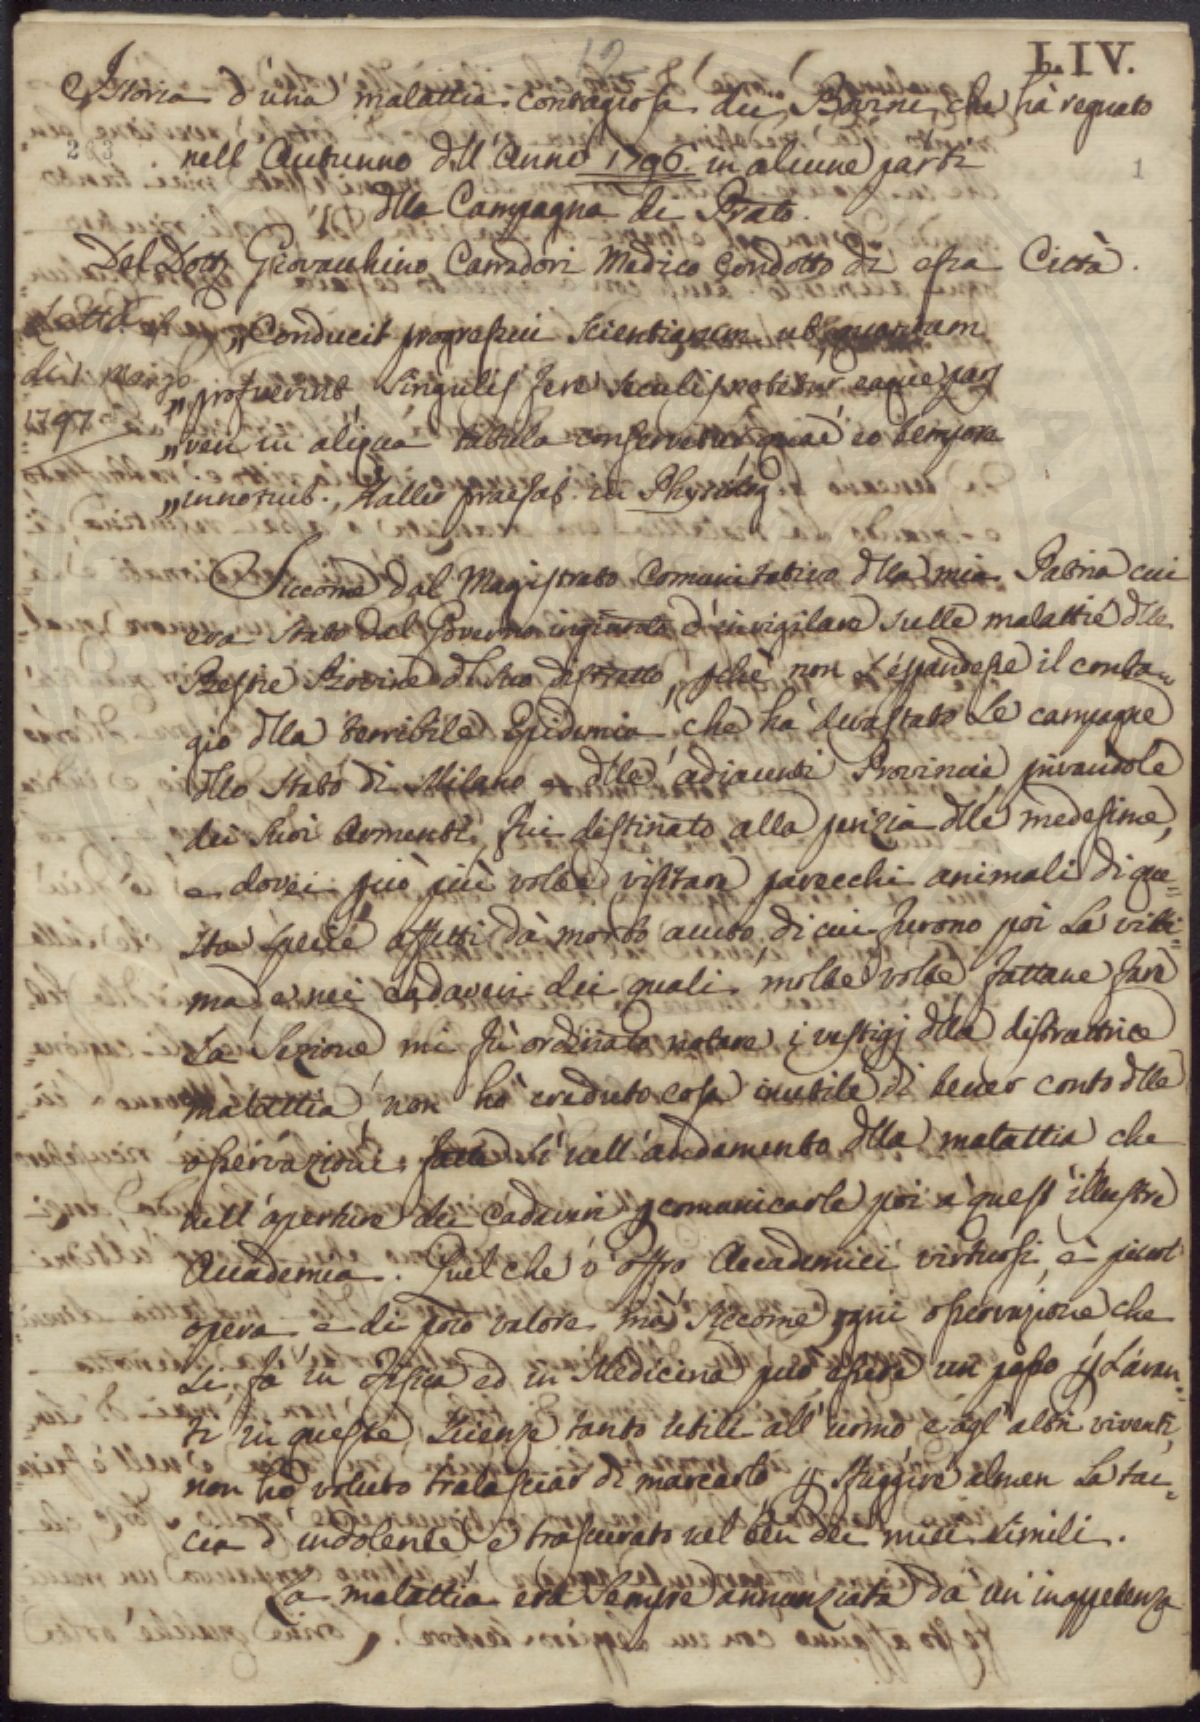 12
LIV.
Istoria d'una malattia contagiosa dei Bovini, che hà regnato
263
nell'Autunno dll'Anno 1796. in alcune parti
1
dlla Campagna di Prato.
Del Dott Giovacchino Carradori Medico Condotto di essa Città.
Letta
„Conducit progressui scientiarum ut quantum
dì 1 Marzo
„profuerint singulis fere seculis notetur eaque
1797
„veu in aliqua tabula conservetur quae eo tempore
„innotuit. Haller praefat. in Physiolog
Siccome dal Magistrato Comunitativo dlla mia Patria cui
era stato dal Governo ingiunto d'invigilare sulle malattie dlle
Bestie Bovine dl suo distretto, pchè non s'espandesse il conta-
gio dlla terribile Epidemia che hà devastato le campagne
dllo Stato di Milano e dlle adiacenti Provincie privandole
dei suoi Armenti, fui destinato alla perizia dlle medesime,
e dovei più volte visitare parecchi animali di que=
sta specie affetti dà morbo acuto di cui furono poi la vitti=
ma e nei cadaveri dei quali molte volte fattane fare
la Sezione mi fù ordinato notare i vestigj dlla distruttrice
malattia non hò creduto cosa inutile di tener conto dlle
osservazioni fatte sì nell'andamento dlla malattia che
nell'aperture dei cadaveri p comunicarle poi a quest'illustre
Accademia. Quel che v'offro Accademici virtuosi è piccol
opera e di poco valore mà siccome ogni osservazione che
si fà in Fisica ed in Medicina può essere un passo p l'avan=
ti in queste scienze tanto utili all'uomo e agl'altri viventi,
non hò voluto tralasciar di marcarlo p sfuggire almen la tac=
cia d'indolente e trascurato nel ben dei miei simili.
La malattia era sempre annunziata da un'inappetenza